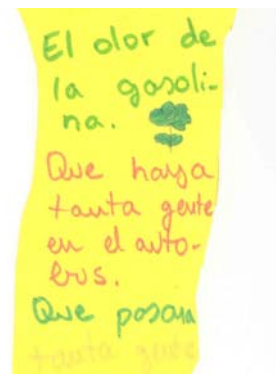 El olor de
la gasoli-
na.
Que haya
tanta gente
en el auto-
bus.
Que
tanta